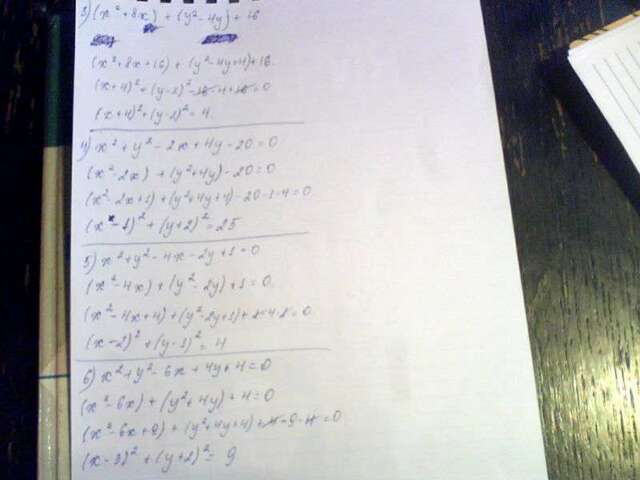 3) (x²+8x) + (y²-4y)+16
(x²+8x+16) + (y²-4y+4)+16
(x+4)²+(y-2)²-16-4+16=0
(x+4)²+(y-2)²=4.
4) x²+y²-2x+4y-20=0
(x²-2x) + (y²+4y)-20=0
(x²-2x+1)+(y²+4y+4)-20-1-4=0
(x-1)²+(y+2)²=25
5) x²+y²-4x-2y+1=0
(x²-4x)+(y²-2y)+1=0.
(x²-4x+4)+(y²-2y+1)+1-4-1=0.
(x-2)²+(y-1)²=4
6) x²+y²-6x+4y+4=0
(x²-6x)+(y²+4y)+4=0
(x²-6x+9)+(y²+4y+4)+4-9-4=0
(x-3)²+(y+2)²=9